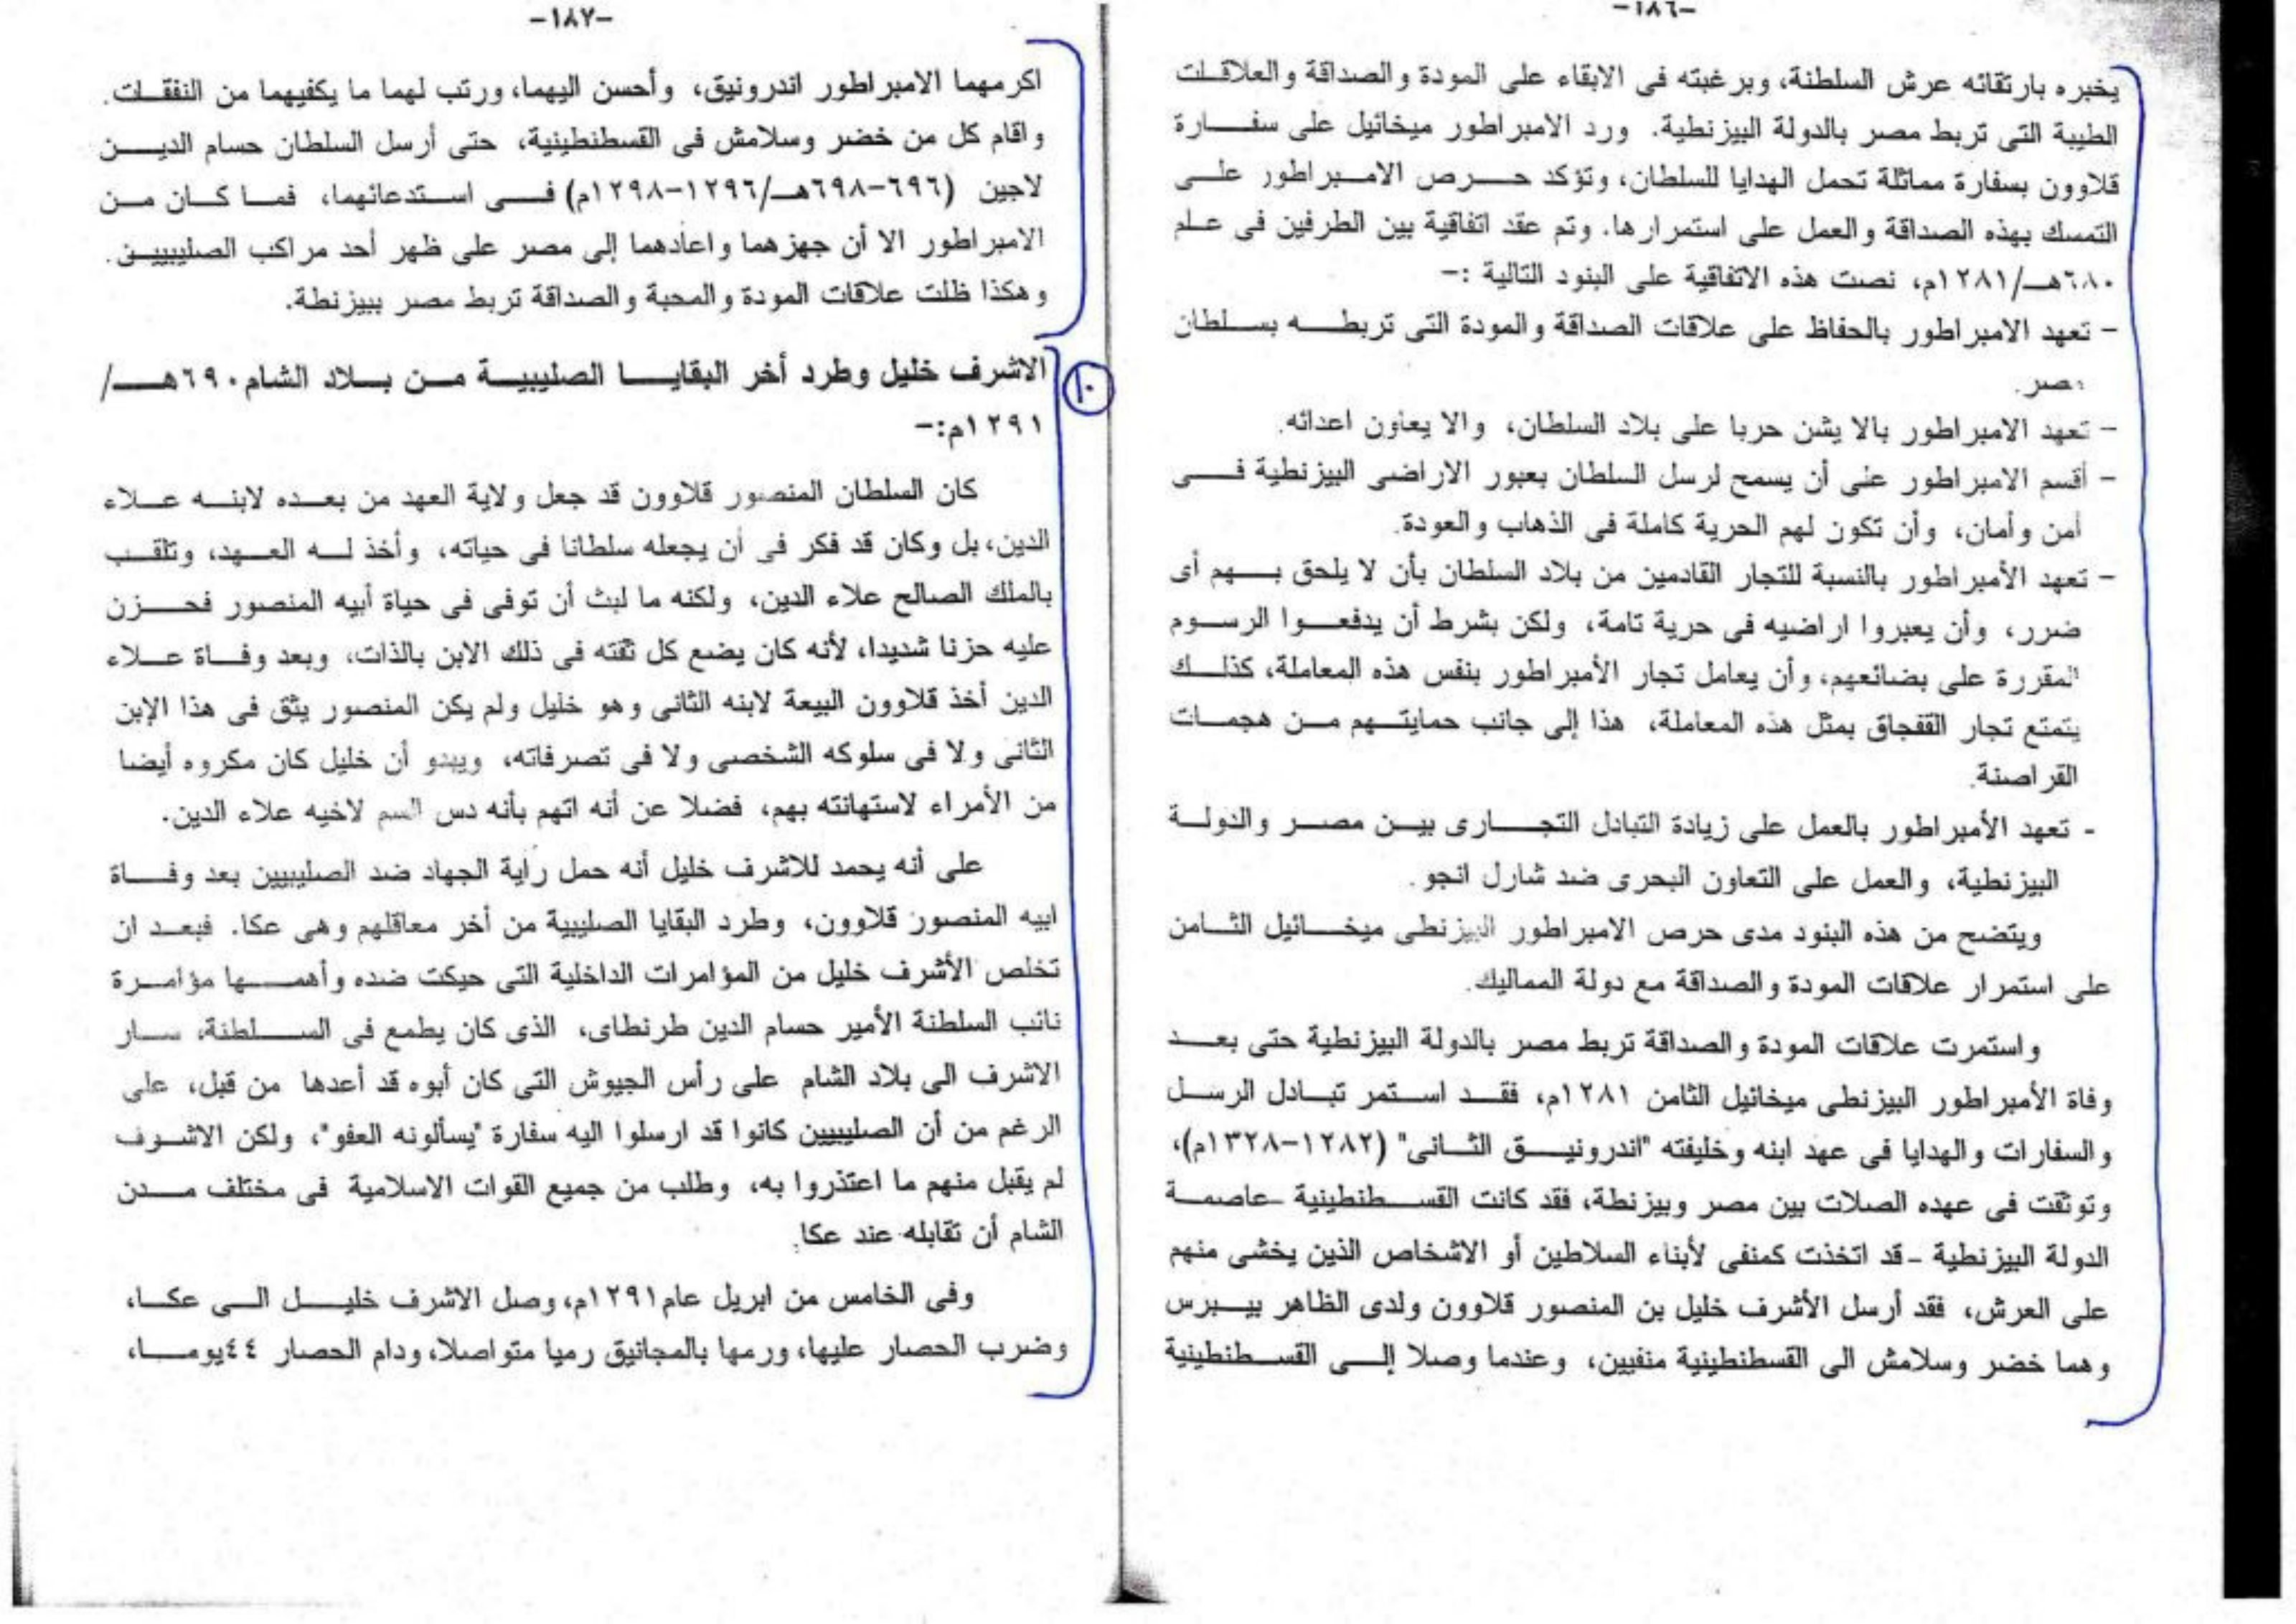 -١٨٦-
يخبره بارتقائه عرش السلطنة، وبرغبته فى الابقاء على المودة والصداقة والعلاقات
الطيبة التى تربط مصر بالدولة البيزنطية. ورد الامبراطور ميخائيل على سفارة
قلاوون بسفارة مماثلة تحمل الهدايا للسلطان، وتؤكد حرص الامبراطور على
التمسك بهذه الصداقة والعمل على استمرارها. وتم عقد اتفاقية بين الطرفين فى علم
٦٨٠هـ/١٢٨١م، نصت هذه الاتفاقية على البنود التالية :-
- تعهد الامبراطور بالحفاظ على علاقات الصداقة والمودة التى تربطه بسلطان
مصر.
- تعهد الامبراطور بالا يشن حربا على بلاد السلطان، والا يعاون اعدائه.
- أقسم الامبراطور على أن يسمح لرسل السلطان بعبور الاراضى البيزنطية فى
أمن وأمان، وأن تكون لهم الحرية كاملة فى الذهاب والعودة.
- تعهد الأمبراطور بالنسبة للتجار القادمين من بلاد السلطان بأن لا يلحق بهم أى
ضرر، وأن يعبروا اراضيه فى حرية تامة، ولكن بشرط أن يدفعوا الرسوم
المقررة على بضائعهم، وأن يعامل تجار الأمبراطور بنفس هذه المعاملة، كذلك
يتمتع تجار القفجاق بمثل هذه المعاملة، هذا إلى جانب حمايتهم من هجمات
القراصنة.
- تعهد الأمبراطور بالعمل على زيادة التبادل التجارى بين مصر والدولة
البيزنطية، والعمل على التعاون البحرى ضد شارل انجو.
ويتضح من هذه البنود مدى حرص الامبراطور البيزنطى ميخائيل الثامن
على استمرار علاقات المودة والصداقة مع دولة المماليك.
واستمرت علاقات المودة والصداقة تربط مصر بالدولة البيزنطية حتى بعد
وفاة الأمبراطور البيزنطى ميخائيل الثامن ١٢٨١م، فقد استمر تبادل الرسل
والسفارات والهدايا فى عهد ابنه وخليفته "اندرونيق الثانى" (١٢٨٢-١٣٢٨م)،
وتوثقت فى عهده الصلات بين مصر وبيزنطة، فقد كانت القسطنطينية -عاصمة
الدولة البيزنطية - قد اتخذت كمنفى لأبناء السلاطين أو الاشخاص الذين يخشى منهم
على العرش، فقد أرسل الأشرف خليل بن المنصور قلاوون ولدى الظاهر بيبرس
وهما خضر وسلامش الى القسطنطينية منفيين، وعندما وصلا إلى القسطنطينية
-١٨٧-
اكرمهما الامبراطور اندرونيق، وأحسن اليهما، ورتب لهما ما يكفيهما من النفقات.
واقام كل من خضر وسلامش فى القسطنطينية، حتى أرسل السلطان حسام الدين
لاجين (٦٩٦-٦٩٨هـ/١٢٩٦-١٢٩٨م) فى استدعائهما، فما كان من
الامبراطور الا أن جهزهما واعادهما إلى مصر على ظهر أحد مراكب الصليبيين.
وهكذا ظلت علاقات المودة والمحبة والصداقة تربط مصر ببيزنطة.
١٠
الاشرف خليل وطرد أخر البقايا الصليبية من بلاد الشام ٦٩٠هـ/
١٢٩١م:-
كان السلطان المنصور قلاوون قد جعل ولاية العهد من بعده لابنه علاء
الدين، بل وكان قد فكر فى أن يجعله سلطانا فى حياته، وأخذ له العهد، وتلقب
بالملك الصالح علاء الدين، ولكنه ما لبث أن توفى فى حياة أبيه المنصور فحزن
عليه حزنا شديدا، لأنه كان يضع كل ثقته فى ذلك الابن بالذات، وبعد وفاة علاء
الدين أخذ قلاوون البيعة لابنه الثانى وهو خليل ولم يكن المنصور يثق فى هذا الإبن
الثانى ولا فى سلوكه الشخصى ولا فى تصرفاته، ويبدو أن خليل كان مكروه أيضا
من الأمراء لاستهانته بهم، فضلا عن أنه اتهم بأنه دس السم لاخيه علاء الدين.
على أنه يحمد للاشرف خليل أنه حمل راية الجهاد ضد الصليبيين بعد وفاة
ابيه المنصور قلاوون، وطرد البقايا الصليبية من أخر معاقلهم وهى عكا. فبعد ان
تخلص الأشرف خليل من المؤامرات الداخلية التى حيكت ضده وأهمها مؤامرة
نائب السلطنة الأمير حسام الدين طرنطاى، الذى كان يطمع فى السلطنة، سار
الاشرف الى بلاد الشام على رأس الجيوش التى كان أبوه قد أعدها من قبل، على
الرغم من أن الصليبيين كانوا قد ارسلوا اليه سفارة "يسألونه العفو"، ولكن الاشرف
لم يقبل منهم ما اعتذروا به، وطلب من جميع القوات الاسلامية فى مختلف مدن
الشام أن تقابله عند عكا.
وفى الخامس من ابريل عام ١٢٩١م، وصل الاشرف خليل الى عكا،
وضرب الحصار عليها، ورمها بالمجانيق رميا متواصلا، ودام الحصار ٤٤يوما،